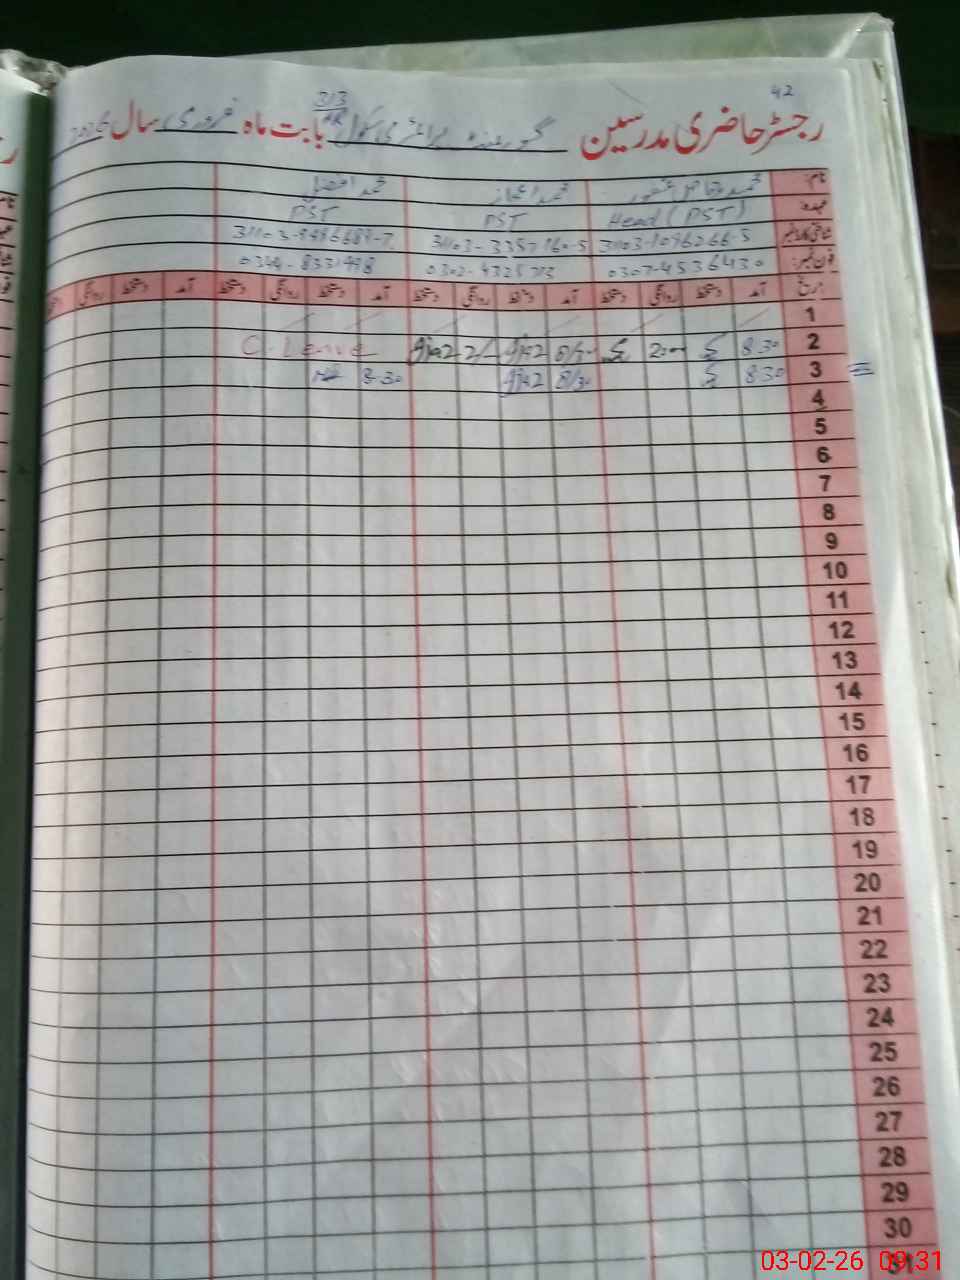 42
رجسٹر حاضری مدرسین گورنمنٹ پرائمری سکول 313 بابت ماہ فروری سال 2026
نام: محمد افضل
عہدہ: Head (PST) PST PST
شناختی کارڈ نمبر 31103-1096266-5
فون نمبر: 0307-4536430 0302-4325713 0344-8331498
تاریخ آمد دستخط روانگی دستخط آمد دستخط روانگی دستخط آمد دستخط روانگی دستخط آمد دستخط روانگی
1
2 8.30 2:00 8/30 Ajaz 2/- Ajaz C-Leave
3 8.30 8/30 Ajaz 8.30
4
5
6
7
8
9
10
11
12
13
14
15
16
17
18
19
20
21
22
23
24
25
26
27
28
29
30
31
03-02-26 09:31